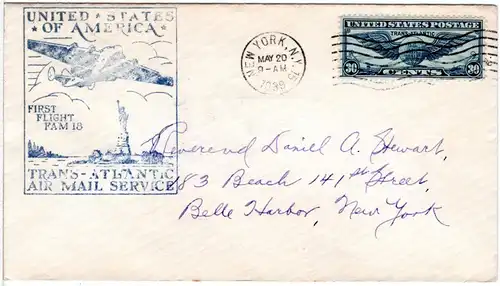 UNITED STATES
OF AMERICA
FIRST
FLIGHT
FAM 18
TRANS-ATLANTIC
AIR MAIL SERVICE
NEW YORK, N.Y.
MAY 20
9-AM
1939
UNITED STATES POSTAGE
TRANS-ATLANTIC
30 CENTS 30
Reverend Daniel A. Stewart,
183 Beach 141st Street,
Belle Harbor, New York